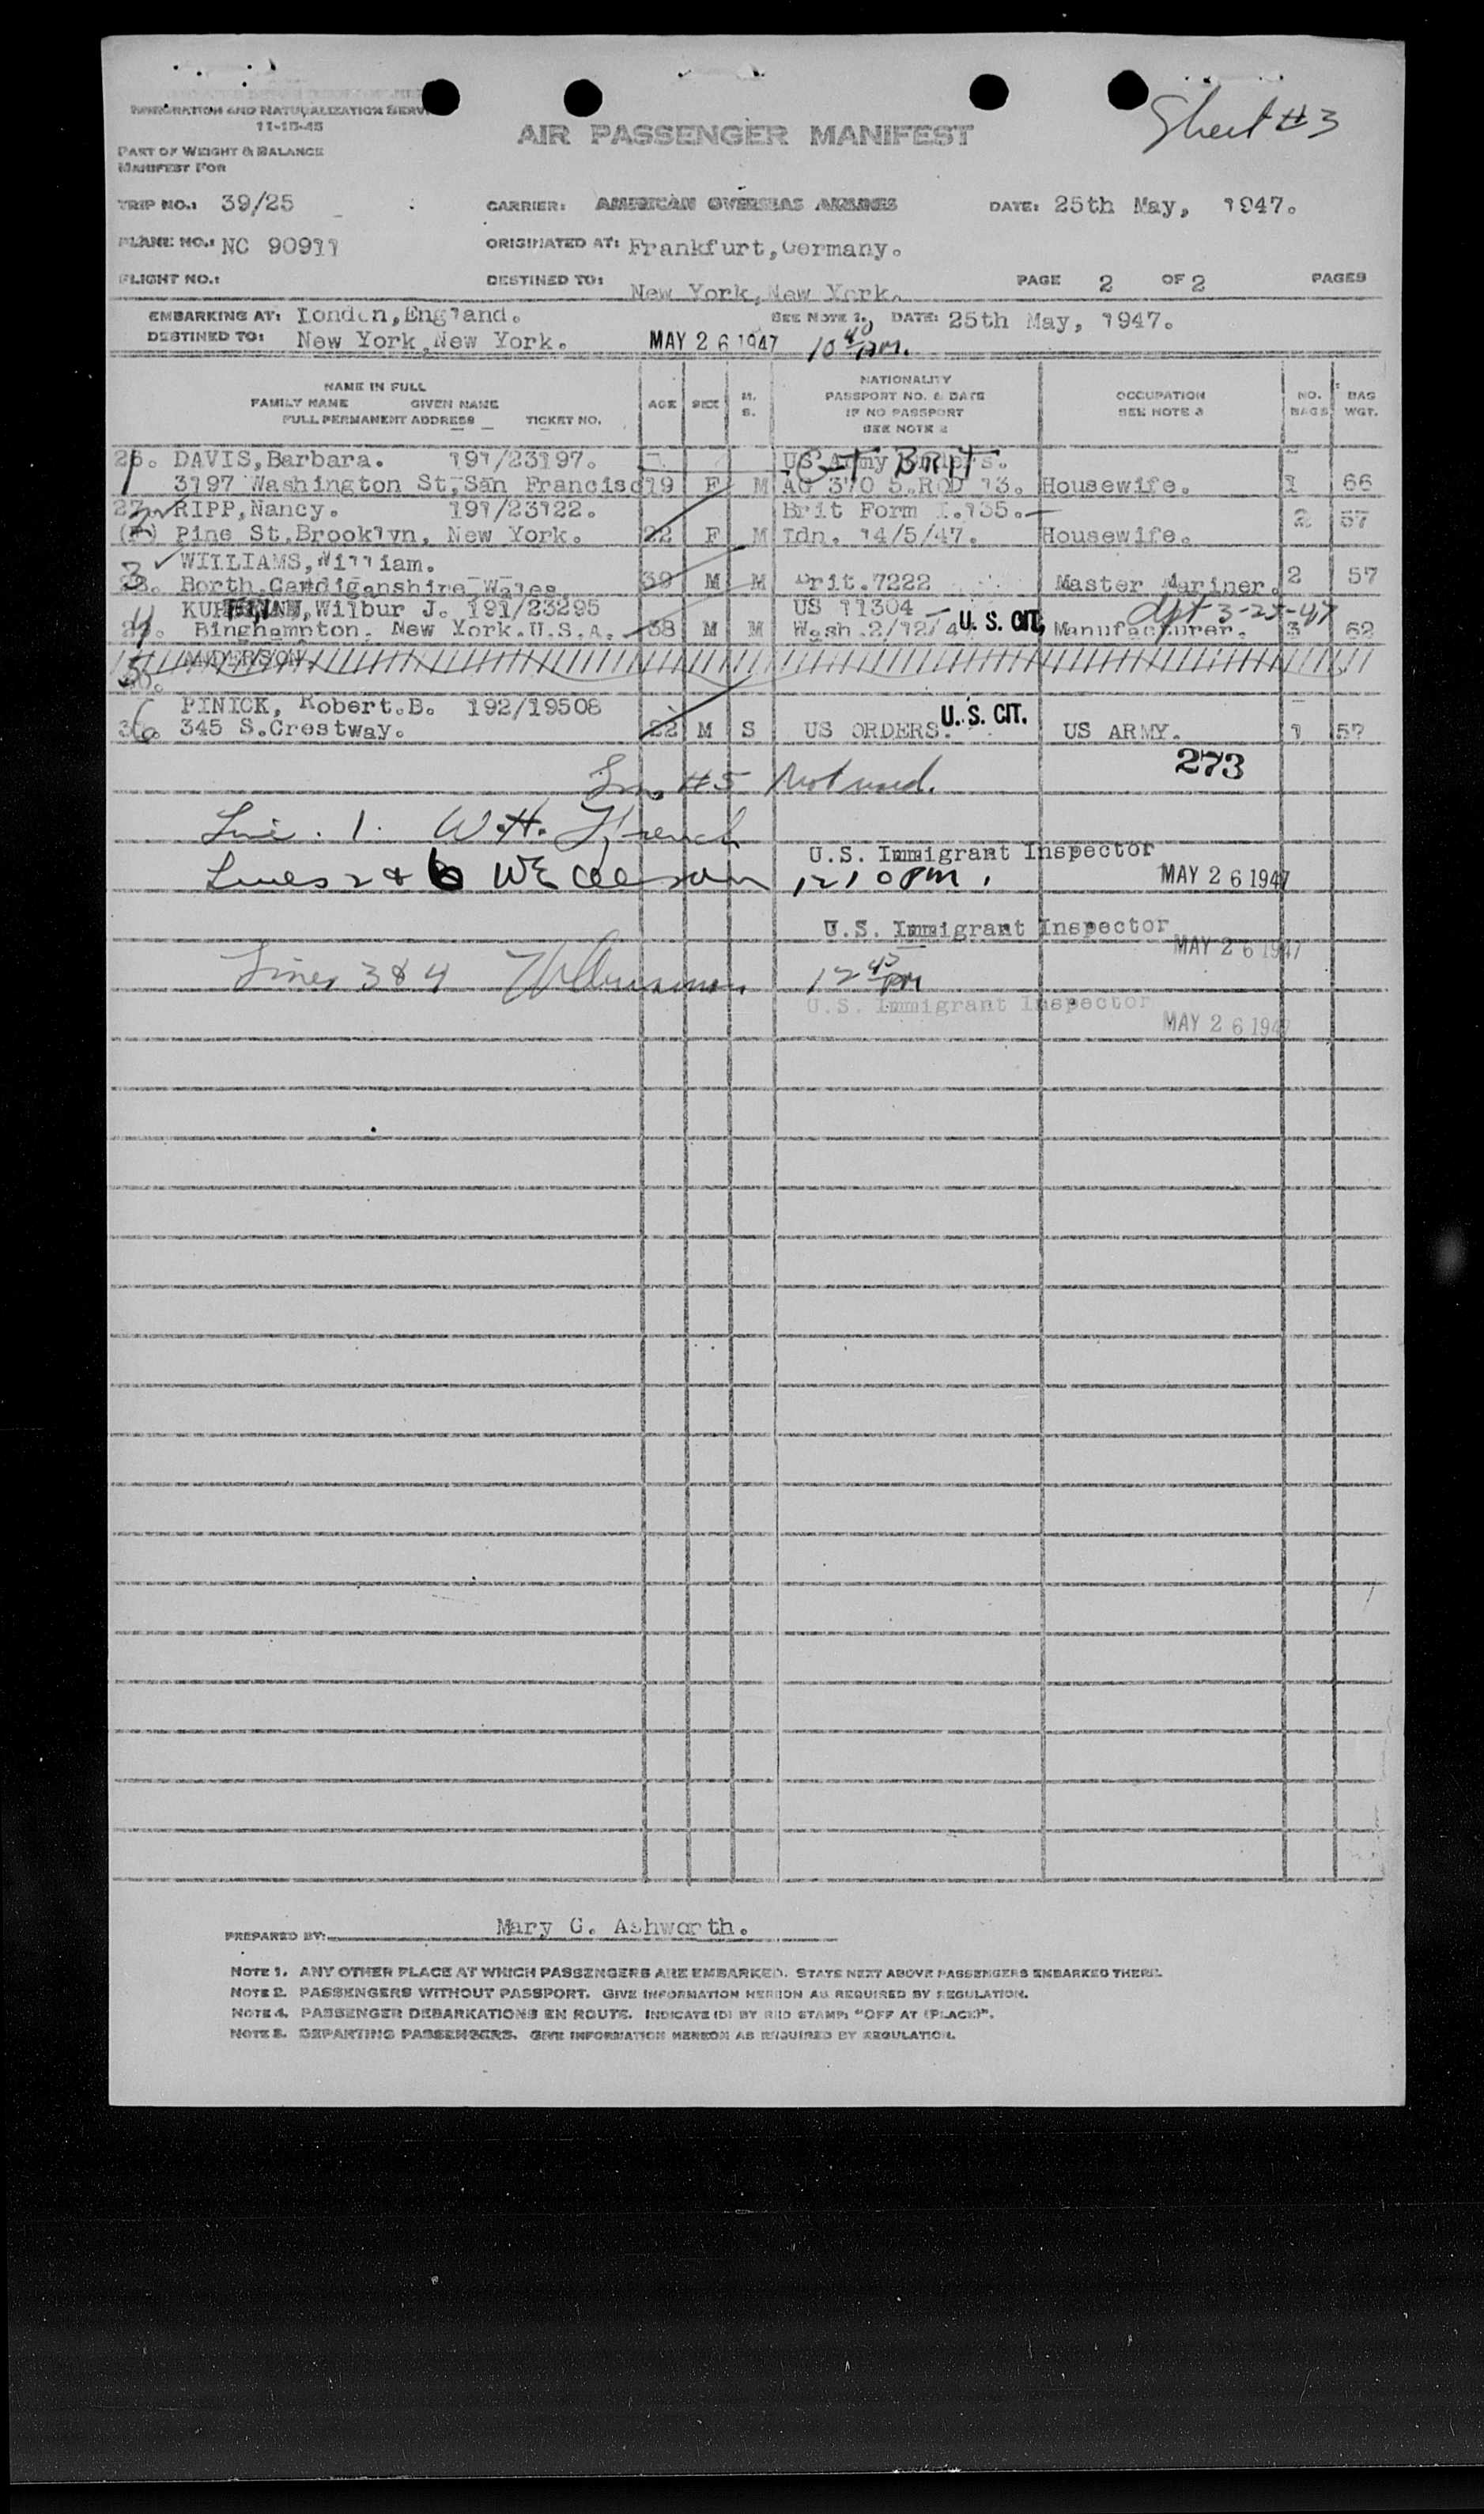 Sheet #3
IMMIGRATION AND NATURALIZATION SERVI
11-15-45
AIR PASSENGER MANIFEST
PART OF WEIGHT & BALANCE
MANIFEST FOR
TRIP NO.: 39/25 CARRIER: AMERICAN OVERSEAS AIRLINES DATE: 25th May, 1947.
PLANE NO.: NC 90911 ORIGINATED AT: Frankfurt,Germany.
FLIGHT NO.: DESTINED TO: New York,New York. PAGE 2 OF 2 PAGES
EMBARKING AT: London,England. SEE NOTE 1. DATE: 25th May, 1947.
DESTINED TO: New York,New York. MAY 26 1947 10 40 PM.
NAME IN FULL
FAMILY NAME GIVEN NAME
FULL PERMANENT ADDRESS TICKET NO.
AGE SEX M. S.
NATIONALITY
PASSPORT NO. & DATE
IF NO PASSPORT
SEE NOTE 2
OCCUPATION
SEE NOTE 3
NO. BAGS
BAG WGT.
1 26. DAVIS,Barbara. 191/23197. US Army BRIT
3197 Washington St,San Francisco 19 F M AG 370 5.ROD 13. Housewife. 1 66
27. RIPP,Nancy. 191/23122. Brit Form I.135. 2 57
Pine St.Brooklyn, New York. 22 F M Ldn. 14/5/47. Housewife.
3 WILLIAMS,William.
28. Borth,Cardiganshire Wales 39 M M Brit.7222 Master Mariner. 2 57
4 Wilbur J. 191/23295 US 11304 3-25-47
Binghampton. New York.U.S.A. 38 M M Wash.2/12/4 U. S. CIT. Manufacturer. 3 62
5 ANDERSON
30.
6 PINICK, Robert.B. 192/19508 U. S. CIT.
345 S.Crestway. 22 M S US ORDERS. US ARMY. 1 57
273
Line #5 Not used.
Line . 1. W.H. French
U.S. Immigrant Inspector
Lines 2 & 6 1210 PM. MAY 26 1947
U.S. Immigrant Inspector
MAY 26 1947
Lines 3 & 4 12 45 PM
U.S. Immigrant Inspector
MAY 26 1947
PREPARED BY: Mary G. Ashworth.
NOTE 1. ANY OTHER PLACE AT WHICH PASSENGERS ARE EMBARKED. STATE NEXT ABOVE PASSENGERS EMBARKED THERE.
NOTE 2. PASSENGERS WITHOUT PASSPORT. GIVE INFORMATION HEREON AS REQUIRED BY REGULATION.
NOTE 4. PASSENGER DEBARKATIONS EN ROUTE. INDICATE (D) BY RED STAMP: "OFF AT (PLACE)".
NOTE 3. DEPARTING PASSENGERS. GIVE INFORMATION HEREON AS REQUIRED BY REGULATION.